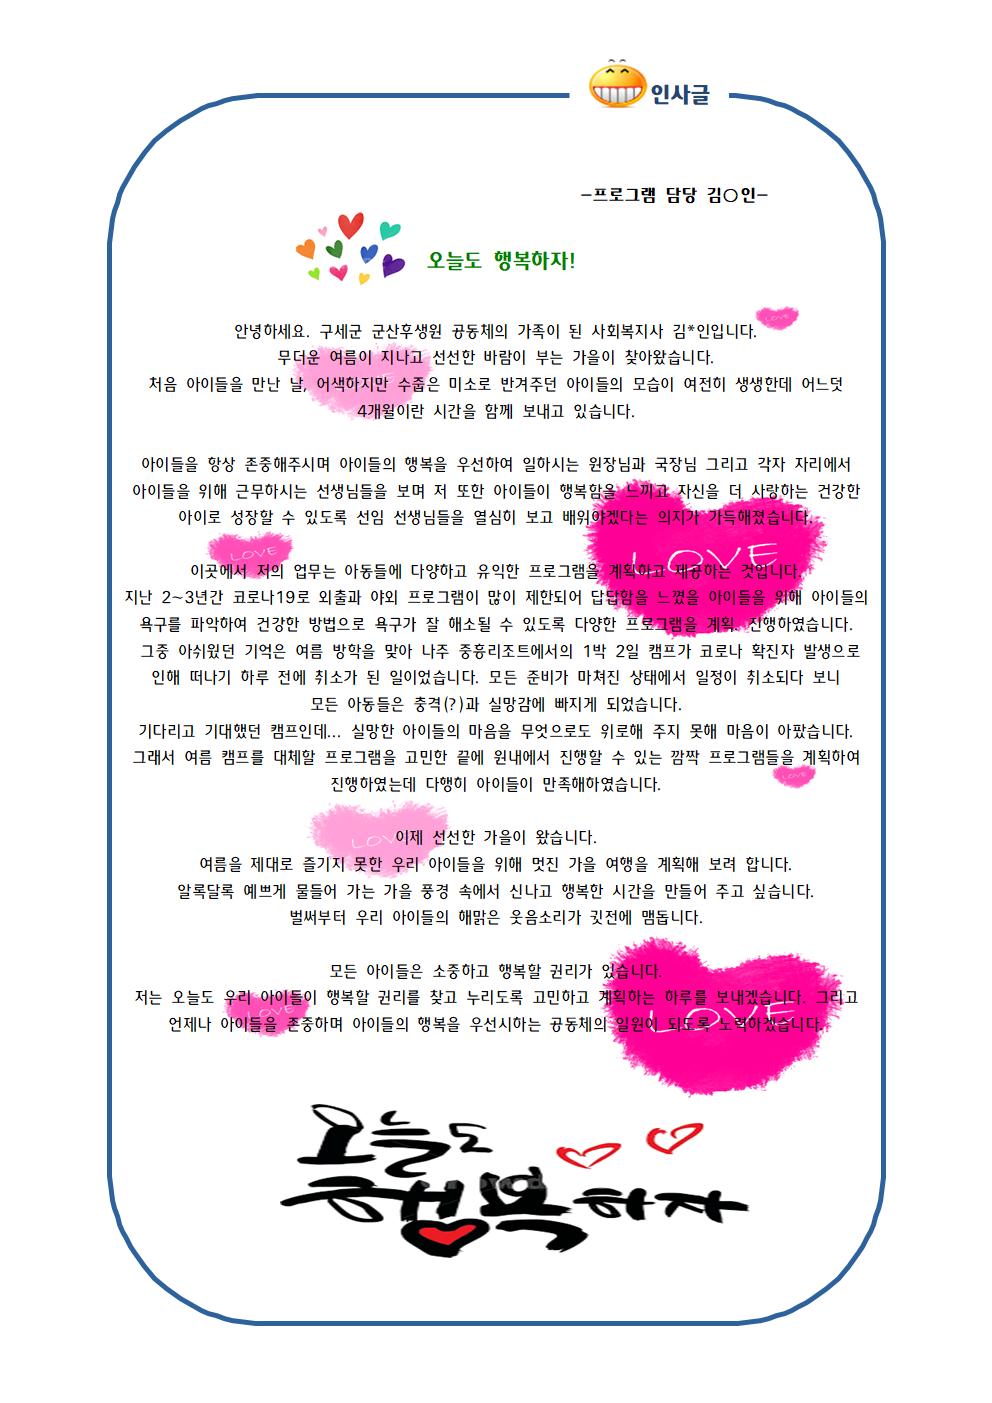 인사글
-프로그램 담당 김○인-
오늘도 행복하자!
LOVE
안녕하세요. 구세군 군산후생원 공동체의 가족이 된 사회복지사 김*인입니다.
무더운 여름이 지나고 선선한 바람이 부는 가을이 찾아왔습니다.
처음 아이들을 만난 날, 어색하지만 수줍은 미소로 반겨주던 아이들의 모습이 여전히 생생한데 어느덧
4개월이란 시간을 함께 보내고 있습니다.
아이들을 항상 존중해주시며 아이들의 행복을 우선하여 일하시는 원장님과 국장님 그리고 각자 자리에서
아이들을 위해 근무하시는 선생님들을 보며 저 또한 아이들이 행복함을 느끼고 자신을 더 사랑하는 건강한
아이로 성장할 수 있도록 선임 선생님들을 열심히 보고 배워야겠다는 의지가 가득해졌습니다.
LOVE
LOVE
이곳에서 저의 업무는 아동들에 다양하고 유익한 프로그램을 계획하고 제공하는 것입니다.
지난 2~3년간 코로나19로 외출과 야외 프로그램이 많이 제한되어 답답함을 느꼈을 아이들을 위해 아이들의
욕구를 파악하여 건강한 방법으로 욕구가 잘 해소될 수 있도록 다양한 프로그램을 계획. 진행하였습니다.
그중 아쉬웠던 기억은 여름 방학을 맞아 나주 중흥리조트에서의 1박 2일 캠프가 코로나 확진자 발생으로
인해 떠나기 하루 전에 취소가 된 일이었습니다. 모든 준비가 마쳐진 상태에서 일정이 취소되다 보니
모든 아동들은 충격(?)과 실망감에 빠지게 되었습니다.
기다리고 기대했던 캠프인데... 실망한 아이들의 마음을 무엇으로도 위로해 주지 못해 마음이 아팠습니다.
그래서 여름 캠프를 대체할 프로그램을 고민한 끝에 원내에서 진행할 수 있는 깜짝 프로그램들을 계획하여
진행하였는데 다행히 아이들이 만족해하였습니다.
LOVE
LOVE
이제 선선한 가을이 왔습니다.
여름을 제대로 즐기지 못한 우리 아이들을 위해 멋진 가을 여행을 계획해 보려 합니다.
알록달록 예쁘게 물들어 가는 가을 풍경 속에서 신나고 행복한 시간을 만들어 주고 싶습니다.
벌써부터 우리 아이들의 해맑은 웃음소리가 귓전에 맴돕니다.
모든 아이들은 소중하고 행복할 권리가 있습니다.
저는 오늘도 우리 아이들이 행복할 권리를 찾고 누리도록 고민하고 계획하는 하루를 보내겠습니다. 그리고
언제나 아이들을 존중하며 아이들의 행복을 우선시하는 공동체의 일원이 되도록 노력하겠습니다.
LOVE
LOVE
오늘도
행복하자